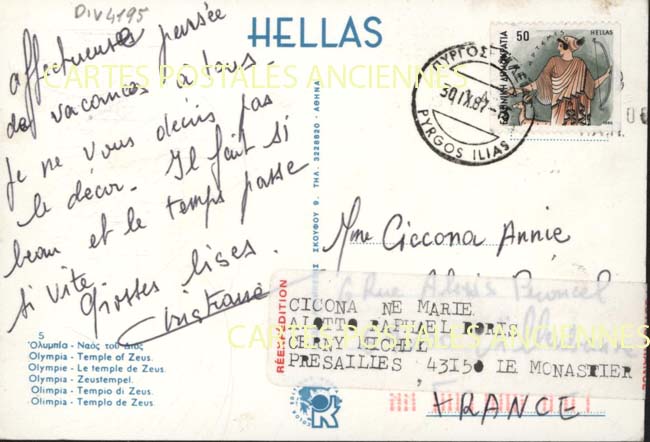 Div4195
HELLAS
affectueuse pensée
de vacances à tous.
Je ne vous décris pas
le décor. Il fait si
beau et le temps passe
si vite
Grosses bises.
CARTES POSTALES ANCIENNES
50
HELLAS
ΑΡΤΕΜΙΣ
ΕΛΛΗΝΙΚΗ ΔΗΜΟΚΡΑΤΙΑ
ΠΥΡΓΟΣ
30.IX.87
PYRGOS ILIAS
ΣΚΟΥΦΟΥ 9. ΤΗΛ. 3228820 - ΑΘΗΝΑ
Mme Ciccona Annie
6 Rue Alexis
RÉEXPÉDITION
CICONA NE MARIE
ALOTTO RAPHAEL
MICHEL
PRESAILLES , 43150 LE MONASTIER
FRANCE
CARTES POSTALES ANCIENNES
5
Ὀλυμπία - Ναός τοῦ Διός
Olympia - Temple of Zeus.
Olympie - Le temple de Zeus.
Olympia - Zeustempel.
Olimpia - Tempio di Zeus.
Olimpia - Templo de Zeus.